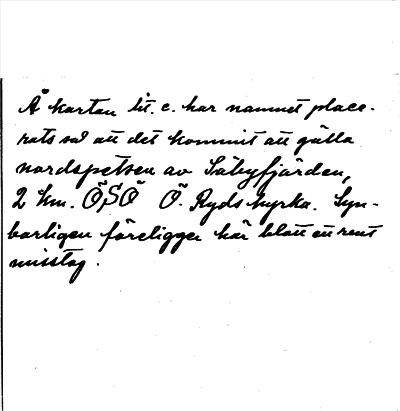 Å kartan lit. c. har namnet place-
rats så att det kommit att gälla
nordspetsen av Säbyfjärden,
2 km. ÖSÖ Ö. Ryds kyrka. Syn-
barligen föreligger här blott ett rent
misstag.